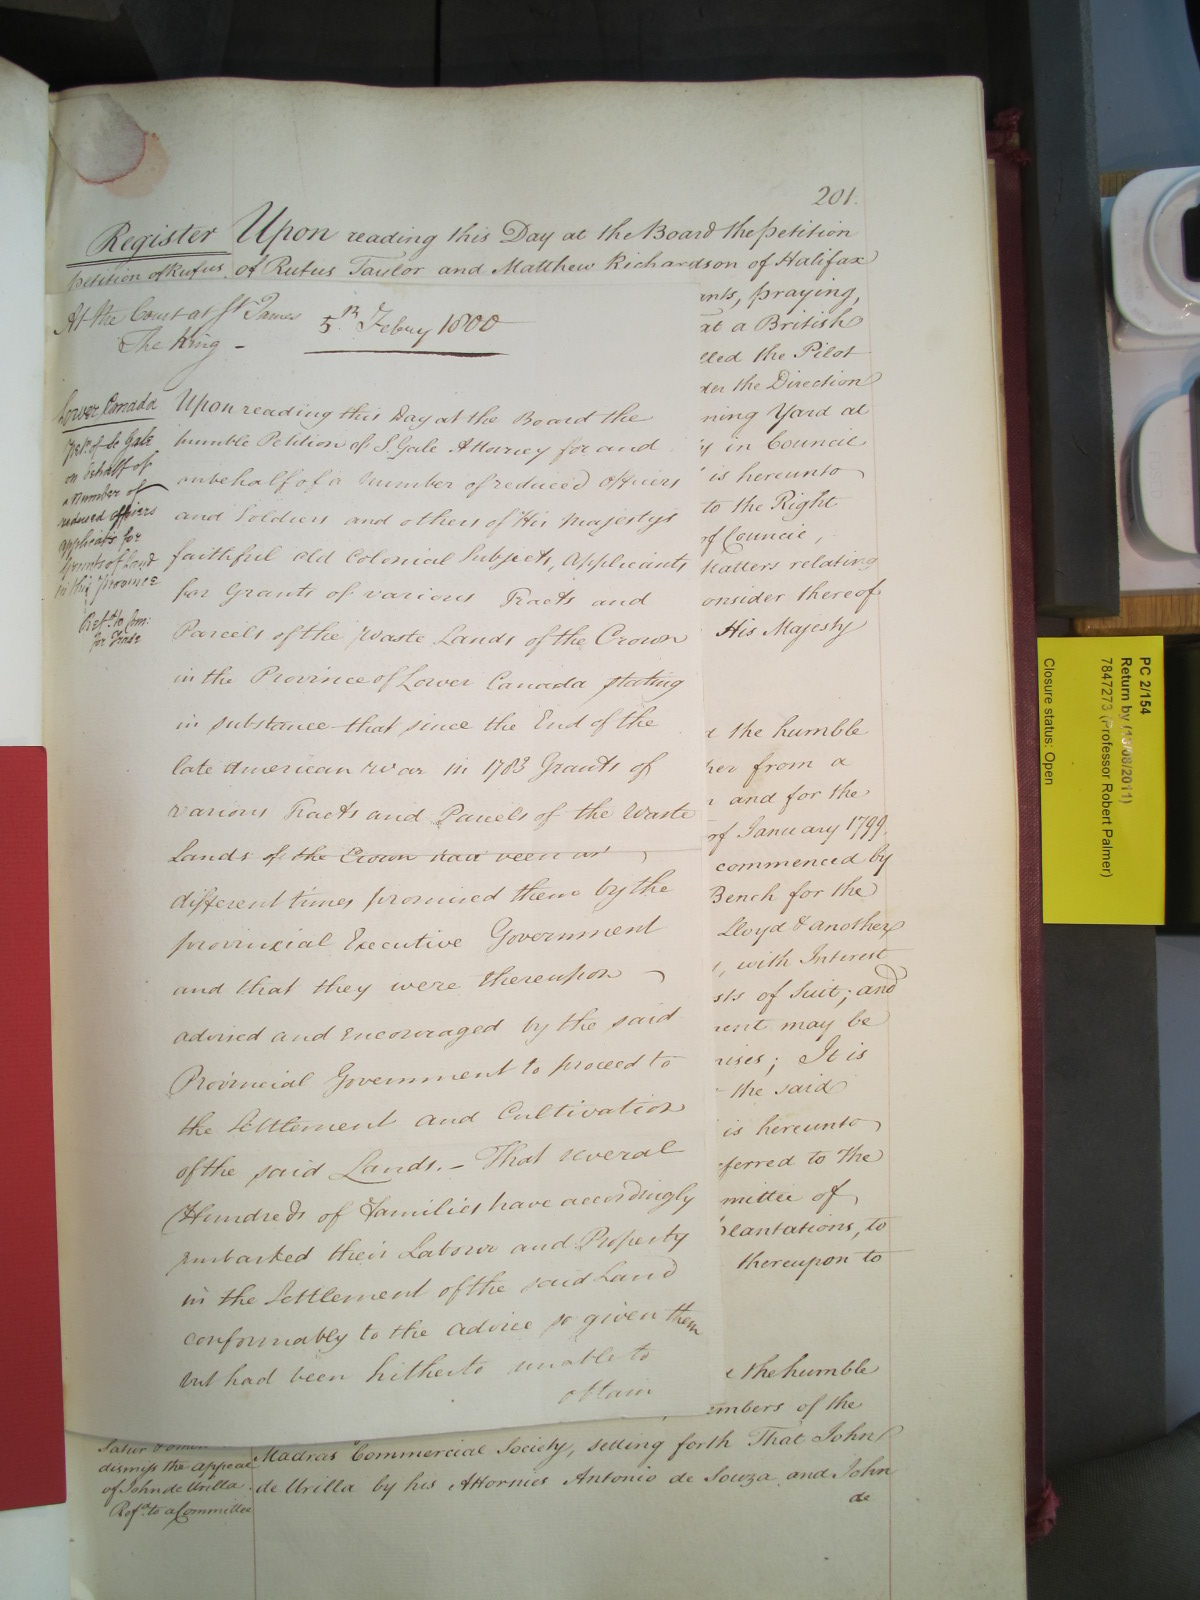 201.
Register Upon reading this Day at the Board the petition
petition of Rufus of Rufus Taylor and Matthew Richardson of Halifax
At the Court at St James 5th Febury 1800
The King -
Lower Canada
Petn. of S. Gale
on behalf of
a Number of
reduced officers
applicats for
Grants of Land
in this Province
Refd. to Com:
for Trade
Upon reading this Day at the Board the
humble Petition of S. Gale Attorney for and
onbehalf of a Number of reduced officers
and Soldiers and others of His Majestys
faithful old Colonial Subjects, Applicants
for Grants of various Tracts and
Parcels of the Waste Lands of the Crown
in the Province of Lower Canada stating
in substance that since the End of the
late American War in 1783 Grants of
various Tracts and Parcels of the Waste
Lands of the Crown had been at
different times promised them by the
provincial Executive Government
and that they were thereupon
advised and Encouraged by the said
Provincial Government to proceed to
the Settlement and Cultivation
of the said Lands. - That several
Hundreds of Families have accordingly
embarked their Labour and Property
in the Settlement of the said Land
conformably to the advice so given them
but had been hitherto unable to
obtain
ants, praying,
at a British
lled the Pilot
der the Direction
ning Yard at
y in Council
is hereunto
to the Right
of Council,
Matters relating
onsider thereof
His Majesty
the humble
her from a
and for the
of January 1799.
commenced by
Bench for the
Lloyd & another
, with Interest
sts of Suit; and
ment may be
mises; It is
the said
is hereunto
ferred to the
mittee of
Plantations, to
thereupon to
the humble
embers of the
dismiss the appeal
of John de Urilla
Refd. to a Committee
Madras Commercial Society, setting forth That John
de Urilla by his Attornies Antonio de Souza and John
de
PC 2/154
Return by (13/08/2011)
7847273 (Professor Robert Palmer)
Closure status: Open